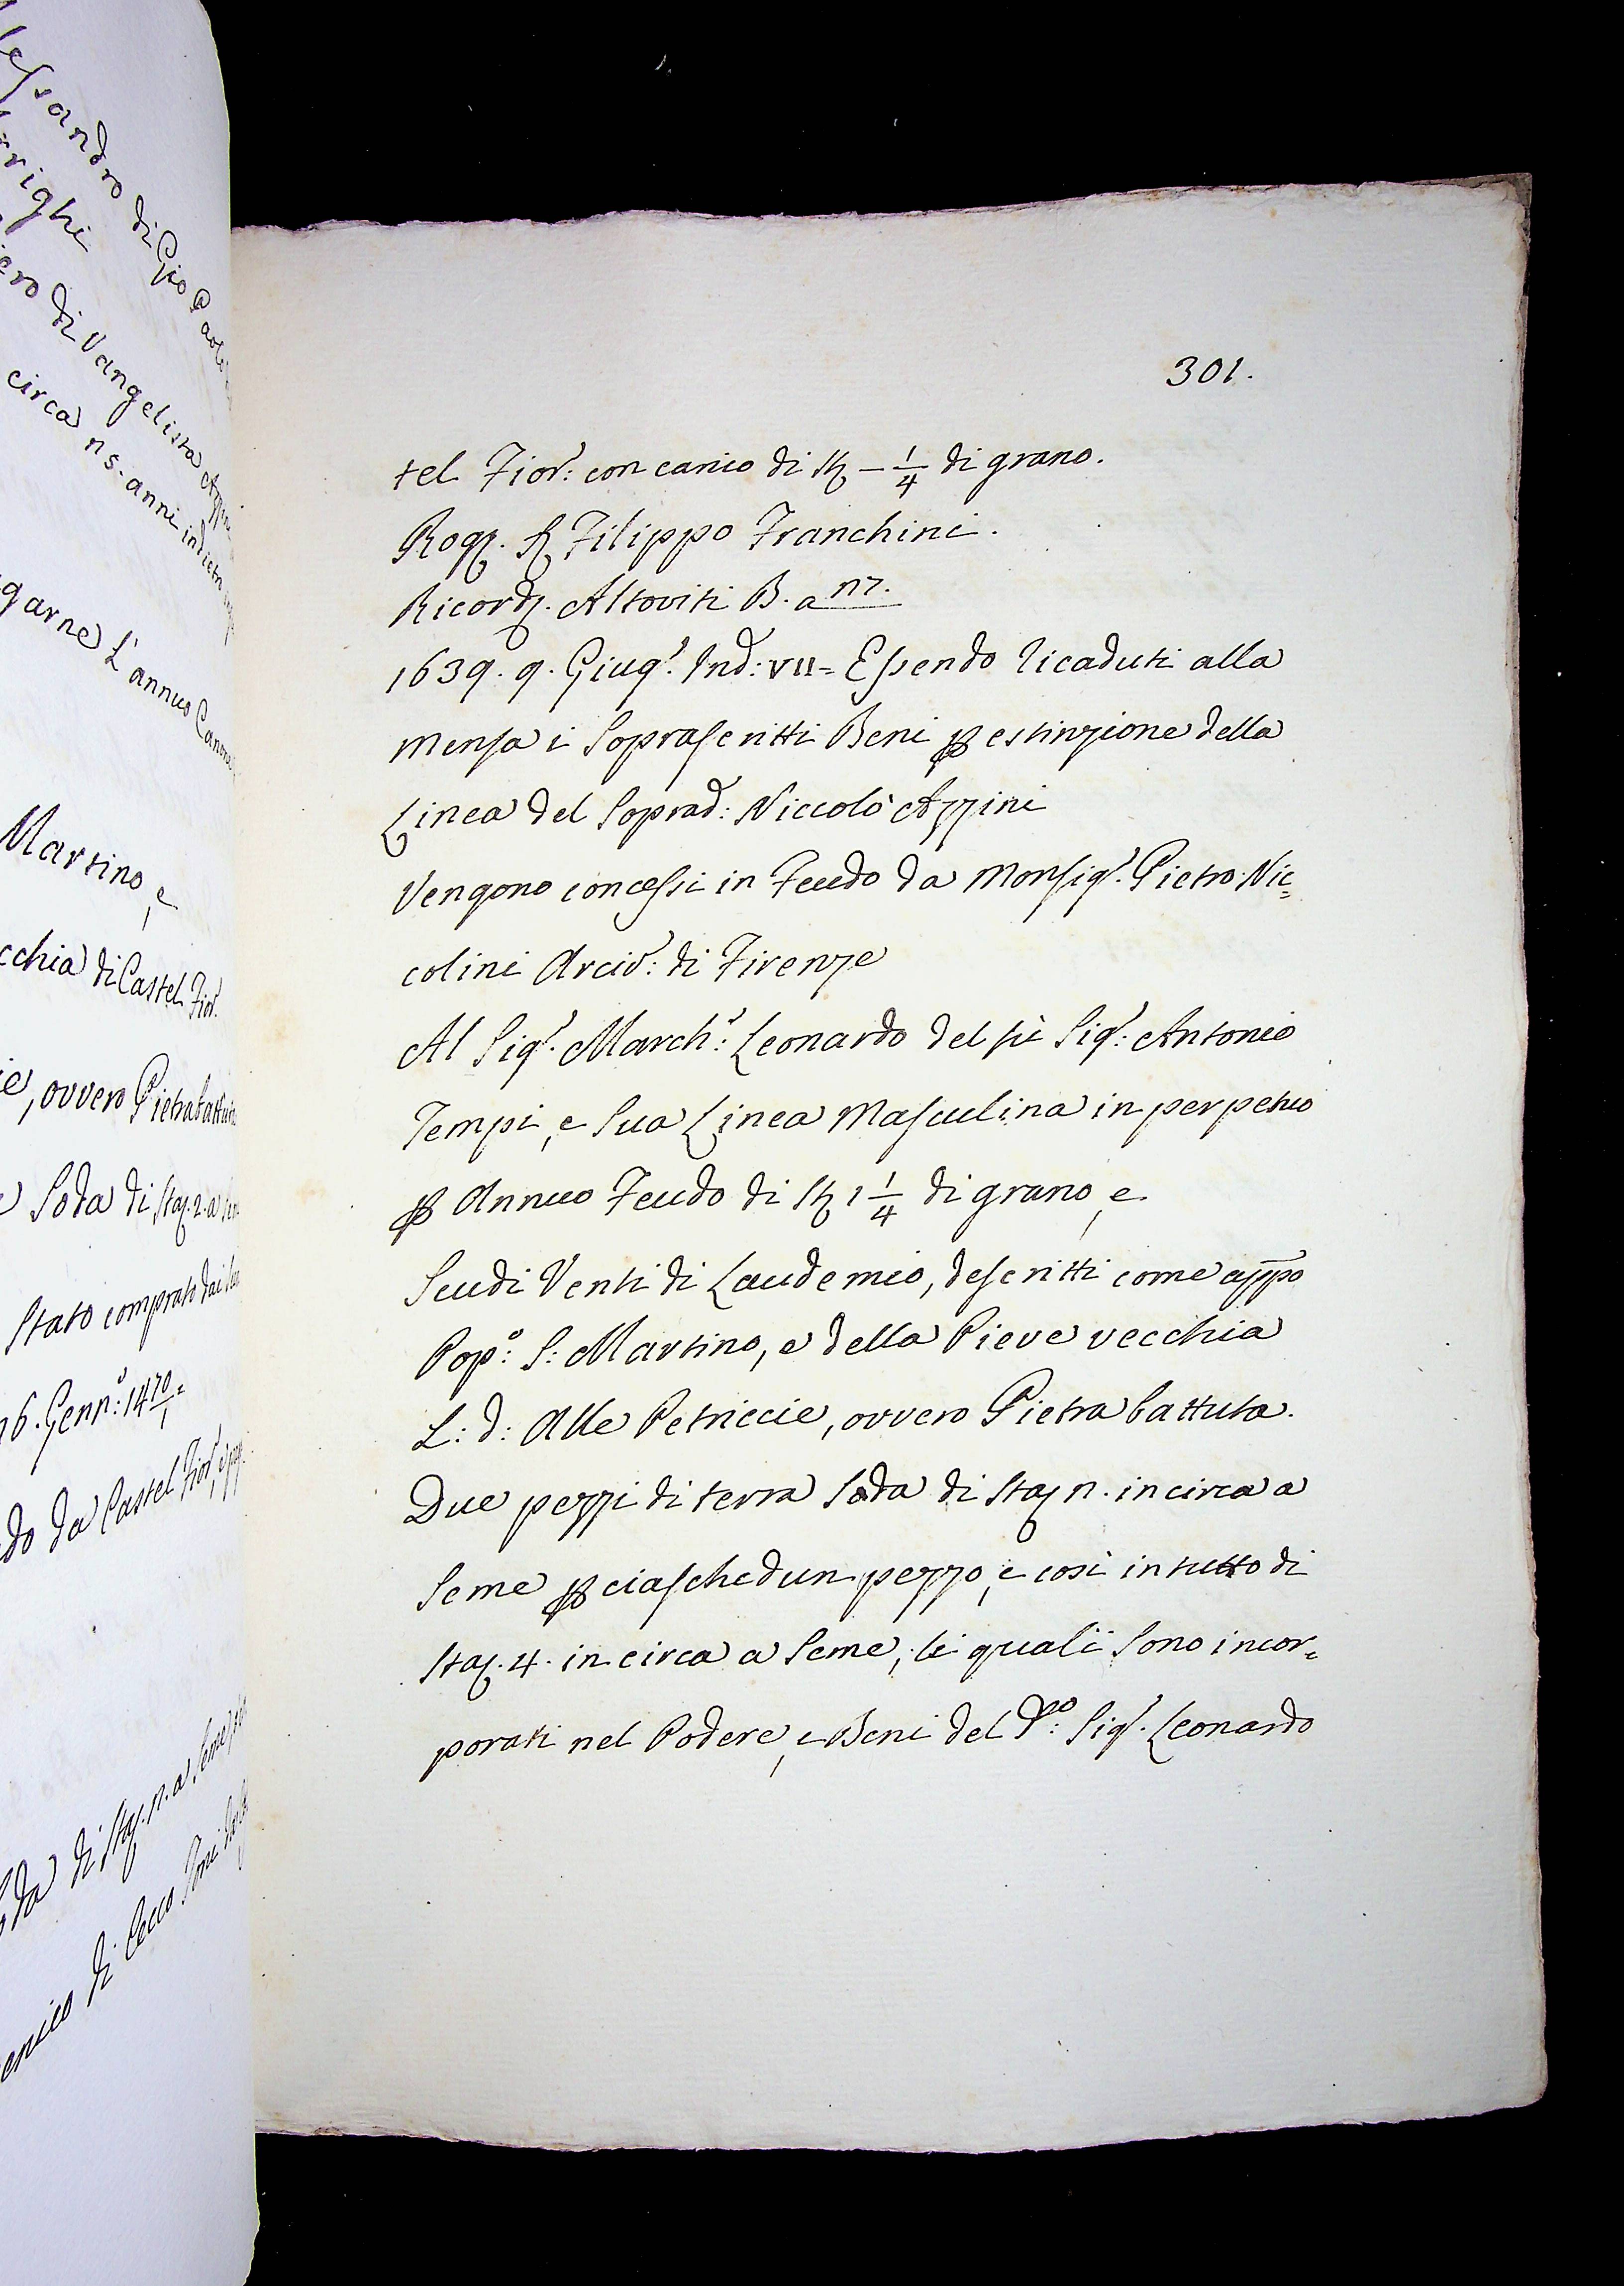 lessandro di Gio Paolo
rrighi
iero di Vangelista
circa ns. anni indietro
garne L'annuo Canone
Martino, e
cchia di Castel Fior:
ie, ovvero Pietrabattuta
Soda di Staj. 2. a
Stato comprato dai
26. Genn:o 1470/1=
do da Castel Fior:
oda di Staj. n. a seme
enico di Cecco
301.
tel Fior: con carico di St — 1/4 di grano.
Rogj. S Filippo Franchini.
Ricordj. Altoviti B. a n7.
1639. 9. Giug: Ind: VII= Essendo ricaduti alla
mensa i Soprascritti Beni p estinzione della
Linea del Soprad: Niccolò Azzini
Vengono concessi in Feudo da Monsig: Pietro Nic=
colini Arciv: di Firenze
Al Sig: March: Leonardo del fù Sig: Antonio
Tempi, e Sua Linea Masculina in perpetuo
p Annuo Feudo di St 1 1/4 di grano, e
Scudi Venti di Laudemio, descritti come appo
Pop:o S: Martino, e della Pieve vecchia
L: d: Alle Petriccie, ovvero Pietra battuta.
Due pezzi di terra Soda di Staj n. in circa a
Seme p ciaschedun pezzo, e così in tutto di
Staj. 4. in circa a Seme, li quali sono incor=
porati nel Podere, e Beni del D:o Sig: Leonardo